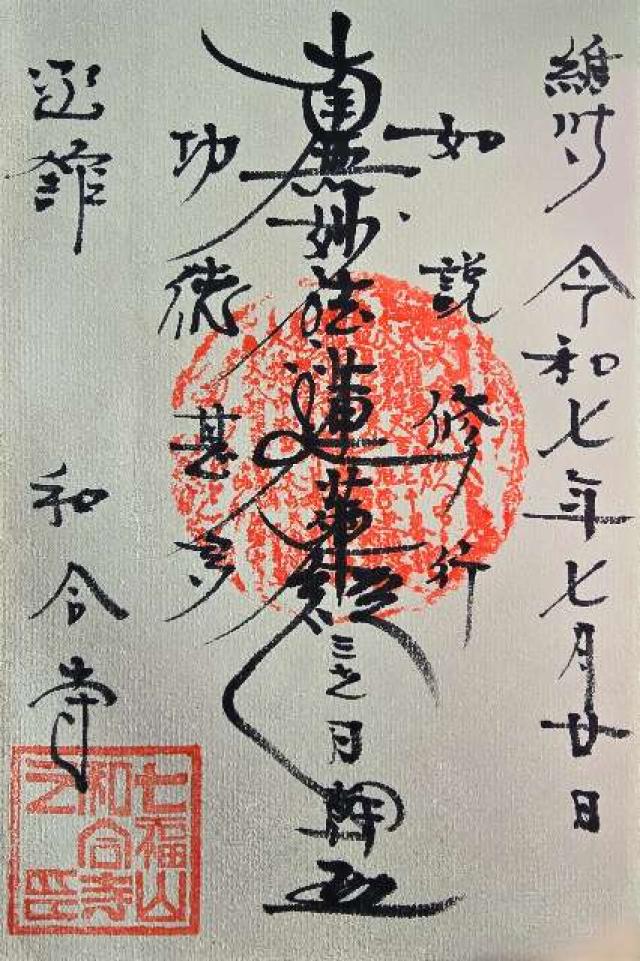 維時 令和七年七月廿日
如説修行
南無妙法蓮華経
功徳甚多
函館 和合寺
七福山
和合寺
之印